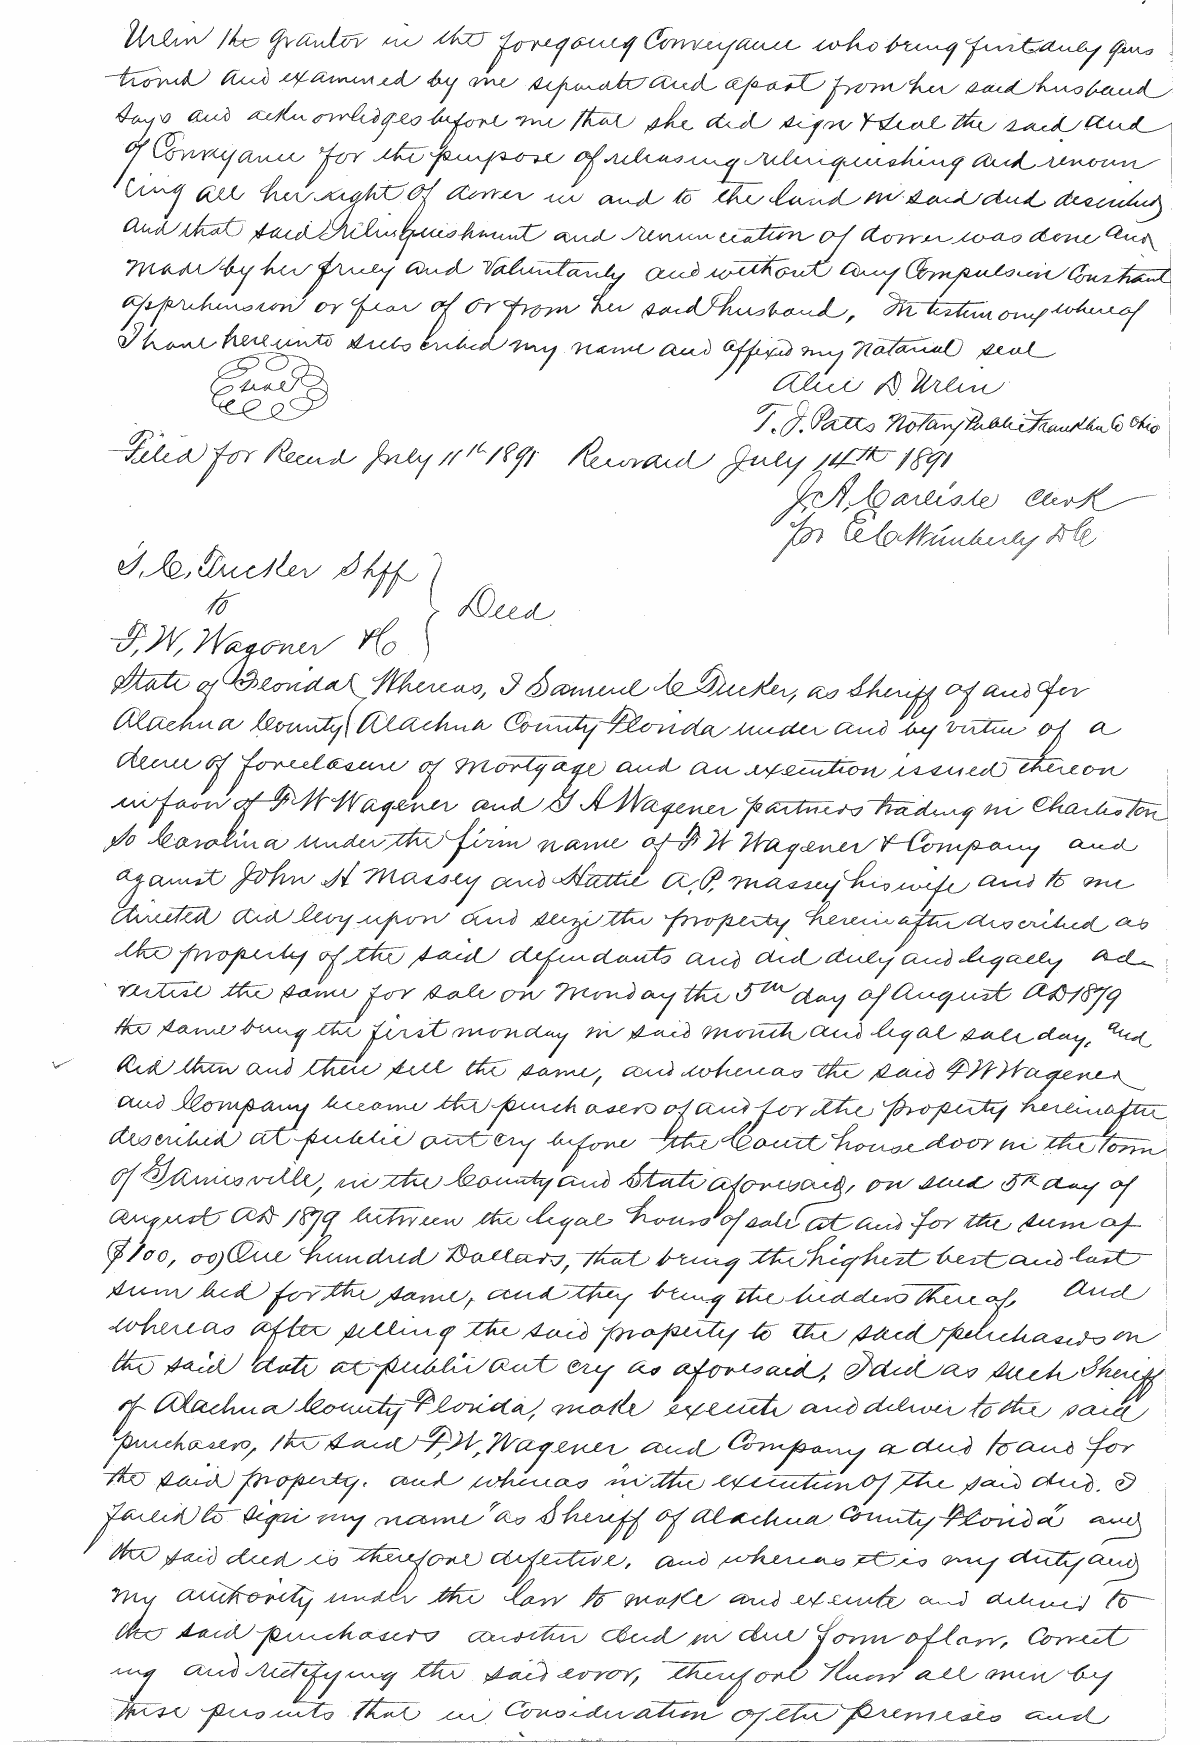 Urlin the grantor in the foregoing Conveyance who being first duly ques
tioned and examined by me separate and apart from her said husband
says and acknowledges before me that she did sign & seal the said deed
of Conveyance for the purpose of releasing relinquishing and renoun
cing all her right of dower in and to the land in said deed described
and that said relinquishment and renunciation of dower was done and
made by her freely and Voluntarily and without any Compulsion Constraint
apprehension or fear of or from her said husband, In testimony whereof
I have hereunto subscribed my name and affixed my Notarial seal
Seal
Alice D Urlin
T. J. Potts Notary Public Franklin Co Ohio
Filed for Record July 11th 1891 Record July 14th 1891
J. A. Carlisle Clerk
pr E C Wimberly D C
S. C. Tucker Shff
to
F. W. Wagoner & Co
Deed
State of Florida Whereas, I Samuel C Tucker, as Sheriff of and for
Alachua County Alachua County Florida under and by virtue of a
decree of foreclosure of mortgage and an execution issued thereon
in favor of F W Wagener and G A Wagener partners trading in Charleston
So Carolina under the firm name of F W Wagener & Company and
against John H Massey and Hattie A. P. Massey his wife and to me
directed did levy upon and seize the property hereinafter described as
the property of the said defendants and did duly and legally ad
vertise the same for sale on Monday the 5th day of August AD 1879
the same being the first monday in said month and legal sale day, and
did then and there sell the same, and whereas the said F W Wagener
and Company became the purchasers of and for the property hereinafter
described at public out cry before the Court house door in the town
of Gainesville, in the County and State aforesaid, on said 5th day of
August AD 1879 between the legal hours of sale at and for the sum of
$100,00) One hundred Dollars, that being the highest best and last
sum bid for the same, and they being the bidders thereof, And
whereas after selling the said property to the said purchasers on
the said date at public out cry as aforesaid, I did as such Sheriff
of Alachua County Florida, make execute and deliver to the said
purchasers, the said F. W. Wagener and Company a deed to and for
the said property. and whereas in the execution of the said deed. I
failed to sign my name "as Sheriff of Alachua County Florida" and
the said deed is therefore defective, and whereas it is my duty and
my authority under the law to make and execute and deliver to
the said purchasers another deed in due form of law, Correct
ing and rectifying the said error, therefore Know all men by
these presents that in Consideration of the premises and